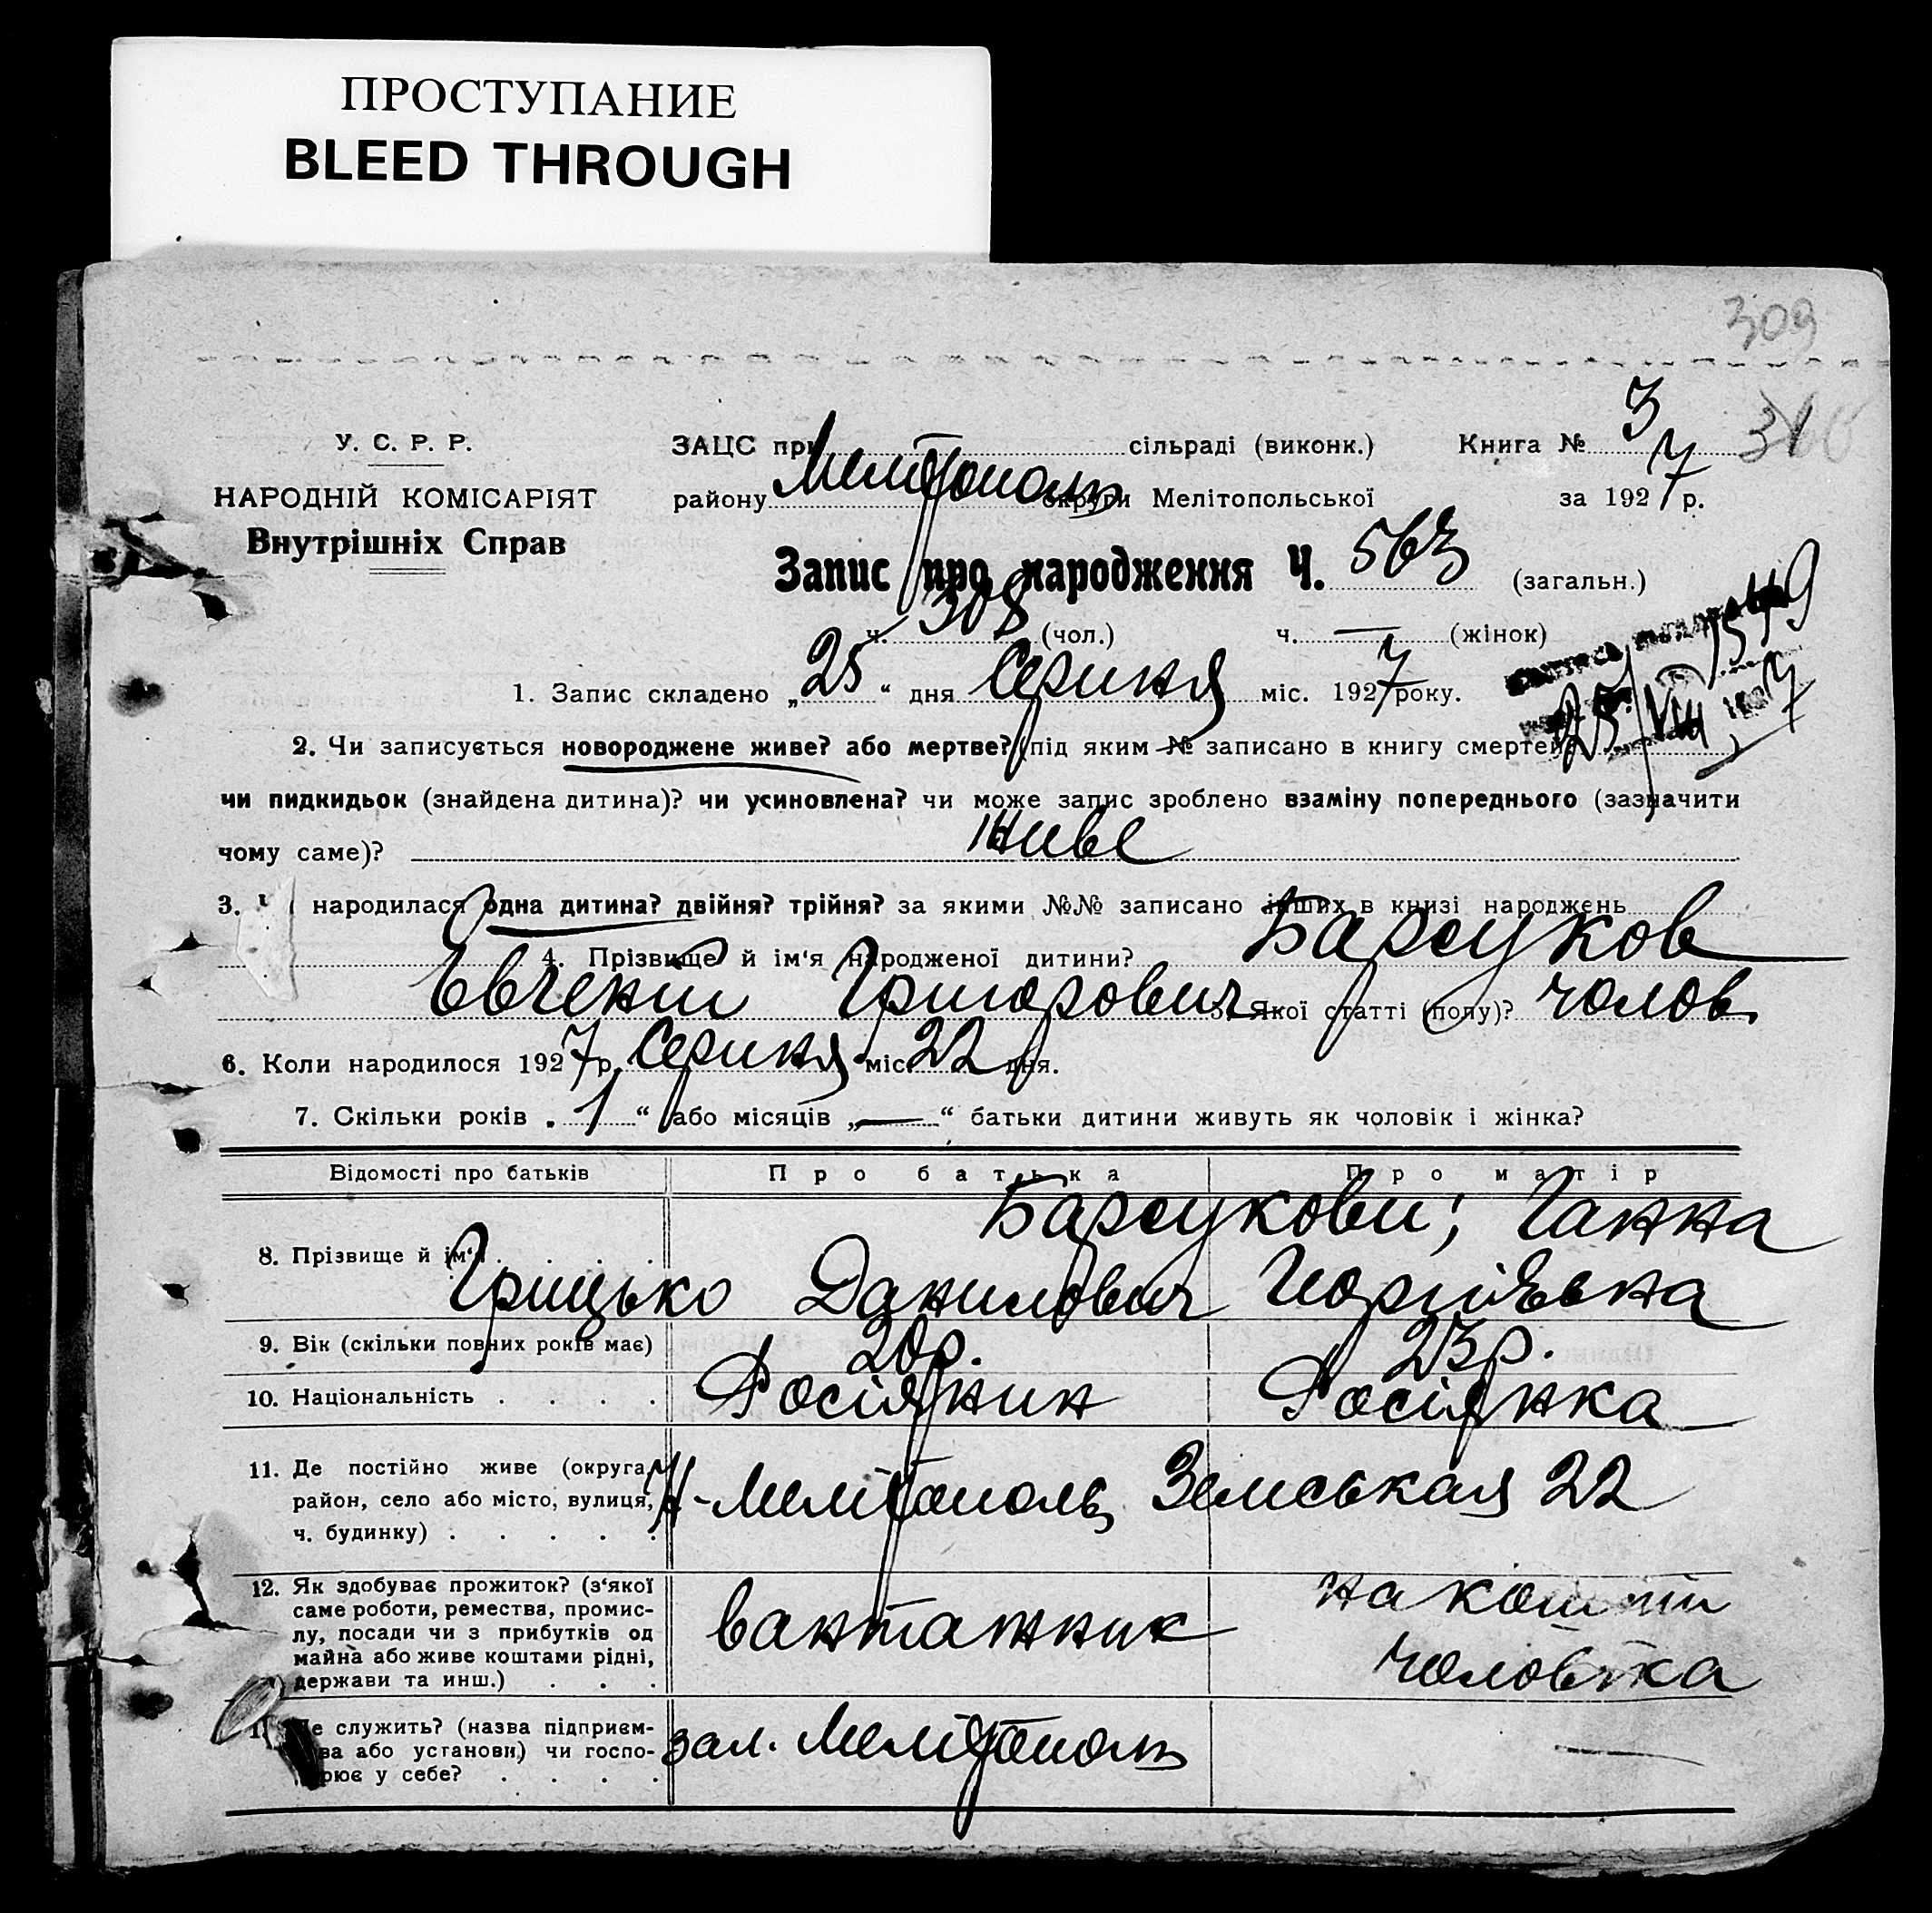 ПРОСТУПАНИЕ
BLEED THROUGH
309
У. С. Р. Р.
НАРОДНІЙ КОМІСАРІЯТ
Внутрішніх Справ
ЗАЦС при сільраді (виконк.) Книга № 3
району Мелітополь округи Мелітопольської за 1927 р.
Запис про народження Ч. 563 (загальн.)
ч. 308 (чол.) ч. — (жінок)
1. Запис складено „25“ дня Серпня міс. 1927 року.
2. Чи записується новороджене живе? або мертве? під яким № записано в книгу смертей
чи пидкидьок (знайдена дитина)? чи усиновлена? чи може запис зроблено взаміну попереднього (зазначити
чому саме)? живе
3. народилася одна дитина? двійня? трійня? за якими №№ записано інших в книзі народжень
4. Прізвище й ім‘я народженої дитини? Барсуков
Євгений Григорович 5. Якої статті (полу)? чолов.
6. Коли народилося 1927 р. Серпня міс. 22 дня.
7. Скільки років „1“ або місяців „—“ батьки дитини живуть як чоловік і жінка?
Відомості про батьків Про батька Про матір
8. Прізвище й ім‘я . . . . . Барсукови; Ганна
Грицько Данилович Георгіевна
9. Вік (скільки повних років має) 20р. 23р.
10. Національність . . . . Росіянин Росіянка
11. Де постійно живе (округа,
район, село або місто, вулиця, Н-Мелітополь Земськая 22
ч. будинку) . . . . .
12. Як здобуває прожиток? (з‘якої
саме роботи, ремества, промис-
лу, посади чи з прибутків од
майна або живе коштами рідні,
держави та инш.) . . .
вантажник на кошти
чоловіка
де служить? (назва підприєм-
ва або установи) чи госпо-
рює у себе? . . . .
зал. Мелітополь —